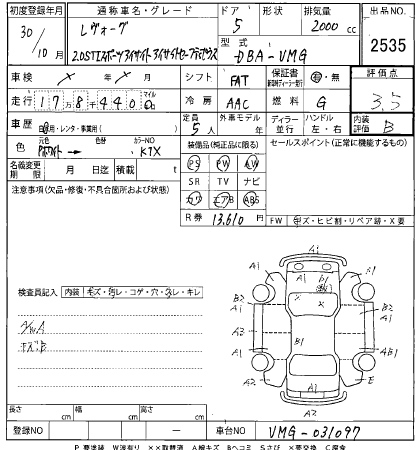 初度登録年月 通称車名・グレード ドア 形状 排気量 出品NO.
30/10月 レヴォーグ 5 2000cc 2535
2.0STIスポーツアイサイト
型式 DBA-VMG
車検 年 月 シフト FAT 保証書 有・無 評価点
走行 17万8千440 冷房 AAC 燃料 G 3.5
車歴 自家用・レンタ・事業用( ) 定員 5人 外車モデル 年 ディーラー 並行 ハンドル 左・右 内装評価 B
色 元色 ホワイト → 色替 カラーNO K1X 装備品(純正品に限る) セールスポイント(正常に機能するもの)
名義変更期限 月 日迄 積載 t PS PW AW
SR TV ナビ
注意事項(欠品・修復・不具合箇所および状態) カワ エアB ABS
R券 13,610 FW キズ・ヒビ割・リペア跡・X要
検査員記入 内装 キズ・汚レ・コゲ・穴・スレ・キレ
A/W.A
ホズB
A1
A1 A1 B1 X1
X X
B2 A1 B2 A1
A3 B1 AB1
A2 A1 E
A2
長さ cm 幅 cm 高さ cm
登録NO — 車台NO VMG-031097
P要塗装 W波有り XX取替済 A線キズ Bヘコミ Sさび X要交換 C腐食